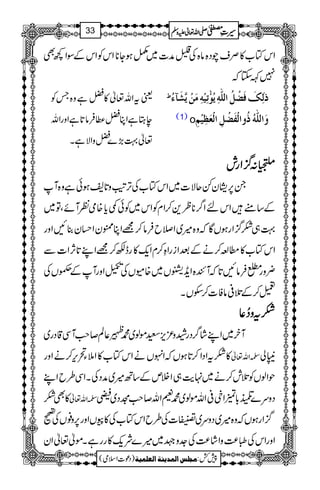 سیرتِ مصطفیٰ صلی اللہ تعالیٰ علیہ وسلم 33
اس کتاب کا صرف چودہ ماہ کی قلیل مدت میں مکمل ہو جانا اس کو اس کے سوا کچھ بھی
نہیں کہہ سکتا کہ
ذٰلِکَ فَضْلُ اللّٰہِ یُؤْتِیْہِ مَنْ یَّشَآءُ ط یعنی یہ اللہ تعالیٰ کا فضل ہے وہ جس کو
وَاللّٰہُ ذُو الْفَضْلِ الْعَظِیْمِ o (1) چاہتا ہے اپنا فضل عطا فرماتا ہے اور اللہ
تعالیٰ بہت بڑے فضل والا ہے۔
ملتجیانہ گزارش
جن پریشان کن حالات میں اس کتاب کی ترتیب و تالیف ہوئی ہے وہ آپ
کے سامنے ہیں اس لئے اگر ناظرین کرام کو اس میں کوئی کمی یا خامی نظر آئے تو میں
بہت ہی شکر گزار ہوں گا کہ وہ میری اصلاح فرما کر مجھے اپنا ممنون احسان بنائیں اور
اس کتاب کا مطالعہ کرنے کے بعد ازراہِ کرم ایک کارڈ لکھ کر مجھے اپنے تاثرات سے
ضرور مطلع فرمائیں تاکہ آئندہ ایڈیشنوں میں خامیوں کی تکمیل اور آپ کے حکموں کی
تعمیل کر کے تلافی مافات کر سکوں۔
شکریہ و دُعا
آخر میں اپنے شاگرد رشید و عزیز سعید مولوی محمد ظہیر عالم صاحب آسی قادری
نیپالی سلمہ اللہ تعالیٰ کا شکریہ ادا کرتا ہوں کہ انہوں نے اس کتاب کا املا تحریر کرنے اور
حوالوں کو تلاش کرنے میں نہایت ہی اخلاص کے ساتھ میری مدد کی۔ اسی طرح اپنے
دوسرے تلمیذ با تمیز اخی فی اللہ مولوی محمد نعیم اللہ صاحب مجددی فیضی سلمہ اللہ تعالیٰ کا بھی شکر
گزار ہوں کہ وہ میری دوسری تصنیفات کی طرح اس کتاب کی کاپیوں اور پروفوں کی تصحیح
اور اس کی طباعت و اشاعت کی جدوجہد میں میرے شریک کار رہے۔ مولیٰ تعالیٰ ان
پیش کش: مجلس المدینۃ العلمیۃ (دعوتِ اسلامی)